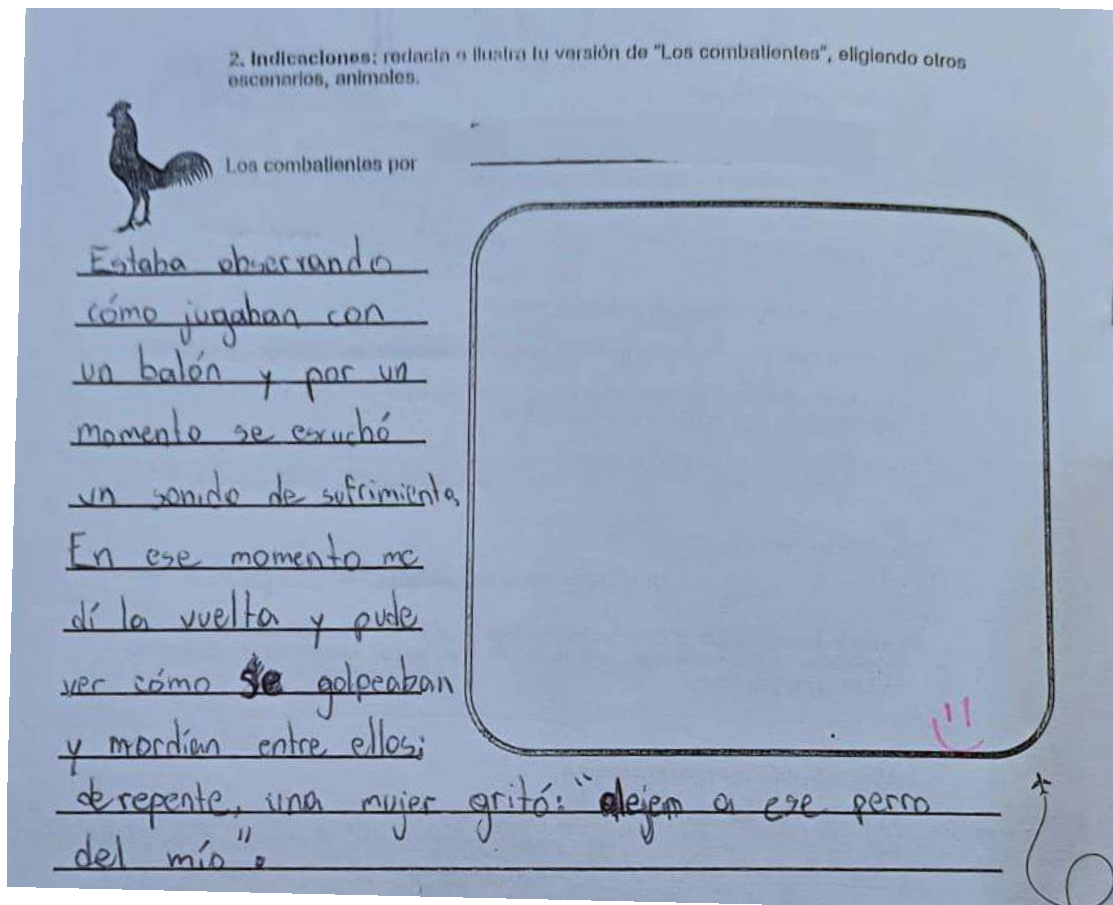 2. Indicaciones: redacta e ilustra tu versión de "Los combatientes", eligiendo otros
escenarios, animales.
Los combatientes por
Estaba observando
cómo jugaban con
un balón y por un
momento se escuchó
un sonido de sufrimiento,
En ese momento me
dí la vuelta y pude
ver cómo se golpeaban
y mordían entre ellos;
derepente, una mujer gritó: "dejem a ese perro
del mío".